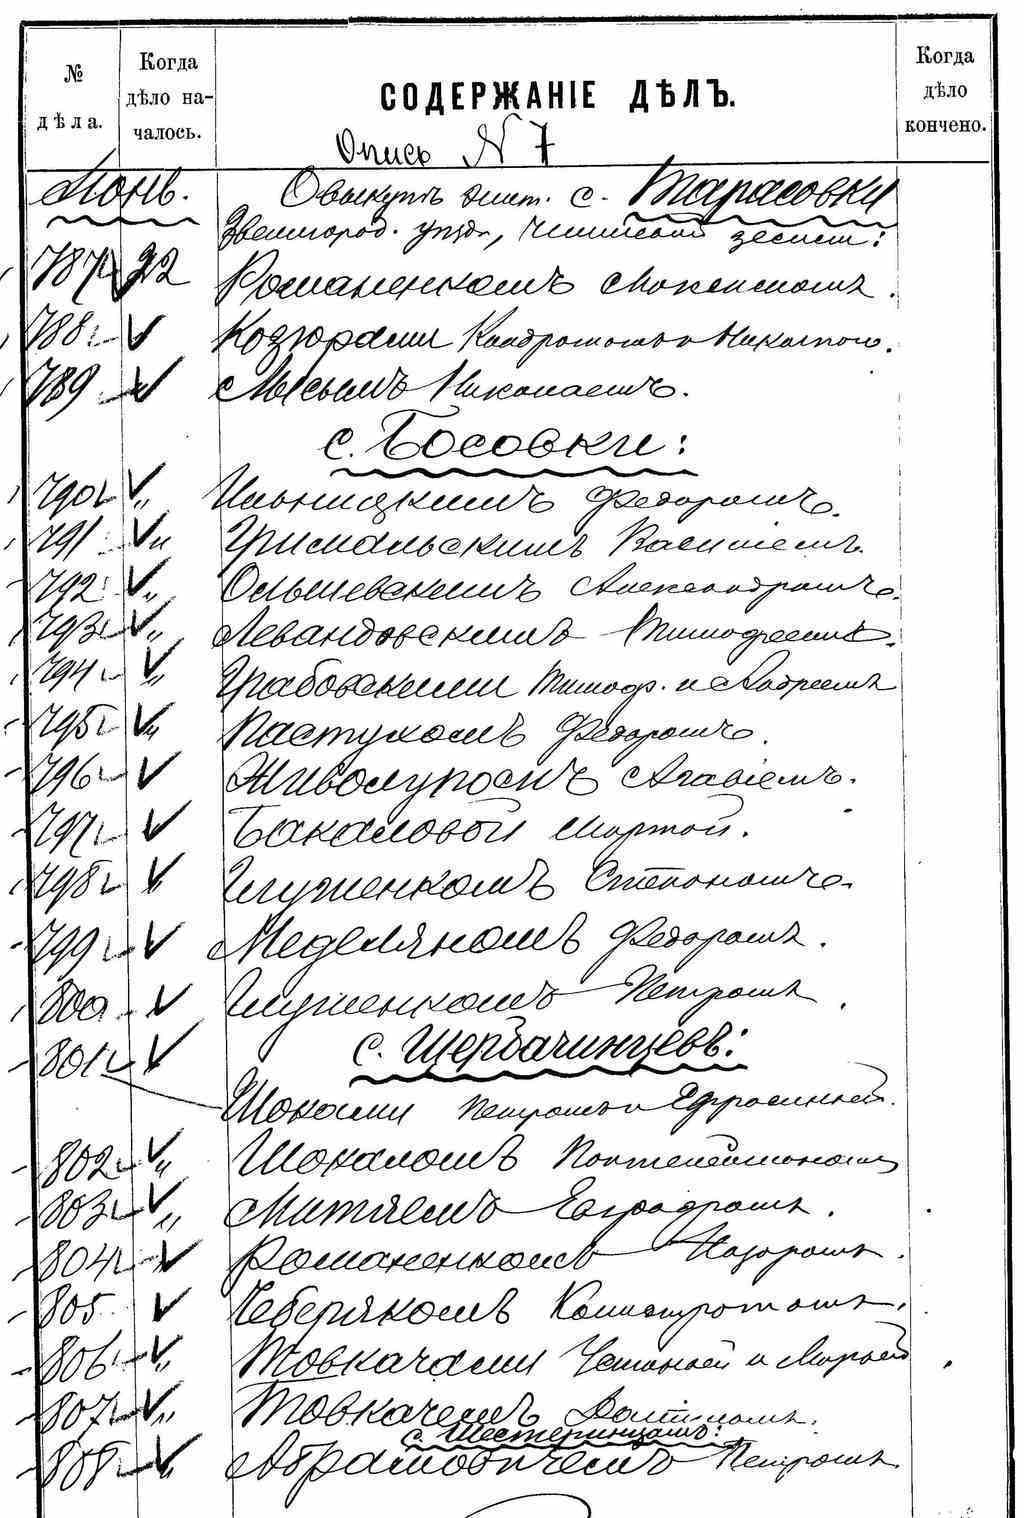 № дѣла.
Когда дѣло началось.
СОДЕРЖАНІЕ ДѢЛЪ.
Когда дѣло кончено.
Опись N 7
О выкупѣ с. Тарасовки
Звенигород. уѣзд.,
787 22 Романенкомъ
788 Кондратомъ и
789 Лысымъ Николаемъ.
с. Босовки:
790 " Ильницкимъ Федоромъ.
791 " Гримальскимъ Василіемъ.
792 " Ольшевскимъ Александромъ.
793 " Левандовскимъ Тимофеемъ.
794 " Грабовскими Тимоф. и Андреемъ
795 " Пастухомъ Федоромъ.
796 " Агапіемъ.
797 " Бакаловой Мартой.
798 " Глущенкомъ Степаномъ.
799 " Меделяномъ Федоромъ.
800 " Глущенкомъ Петромъ.
801 " с. Щербачинцевъ:
Шокалами Петромъ и Ефросиніей.
802 " Шокаломъ Пантелеймономъ
803 " Митяемъ Евграфомъ.
804 " Романенкомъ Назаромъ.
805 " Чеберякомъ Калистратомъ.
806 " Товкачами и Марьей
807 " Товкачемъ
с. Шестеринцамъ:
808 " Абрамовичемъ Петромъ.